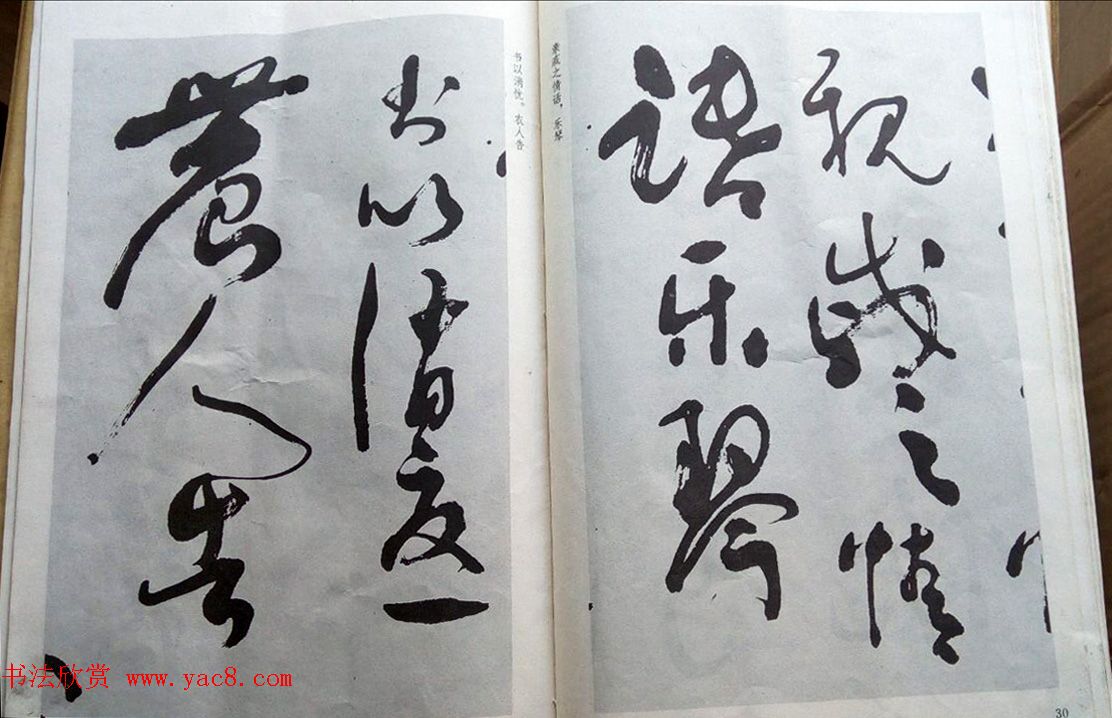 親戚之情
話乐琴
亲戚之情话，乐琴
30
书以消忧。农人告
書以消憂
農人告
书法欣赏 www.yac8.com